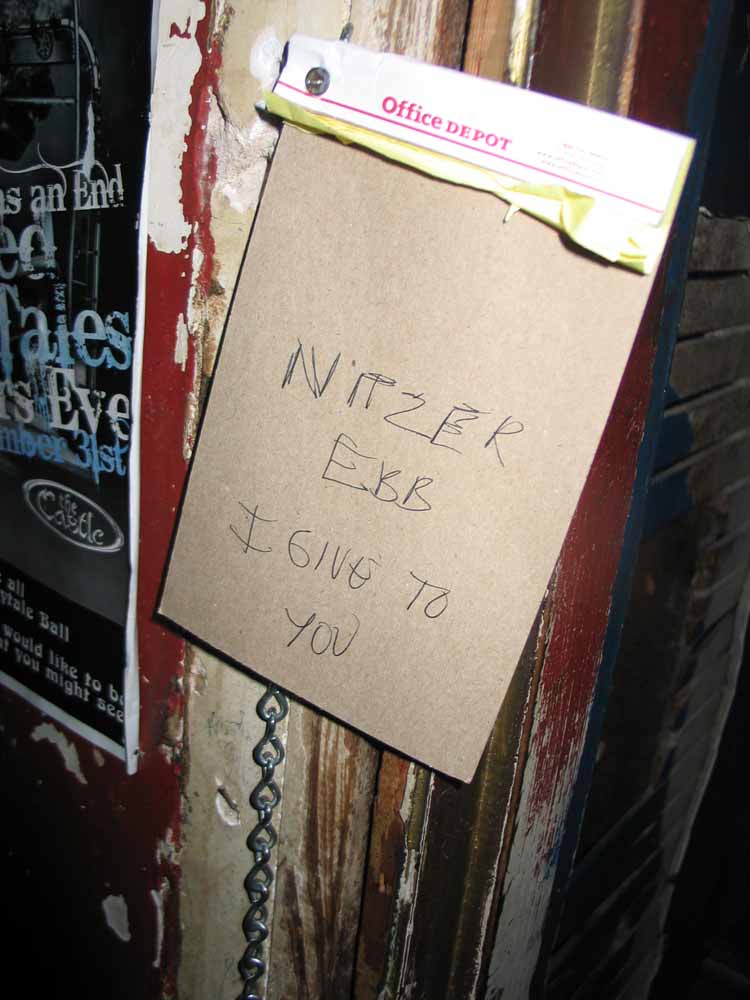 Office DEPOT
NITZER
EBB
I GIVE TO
YOU
as an End
ed
Tales
rs Eve
mber 31st
the
Castle
all
rytale Ball
would like to be
at you might see